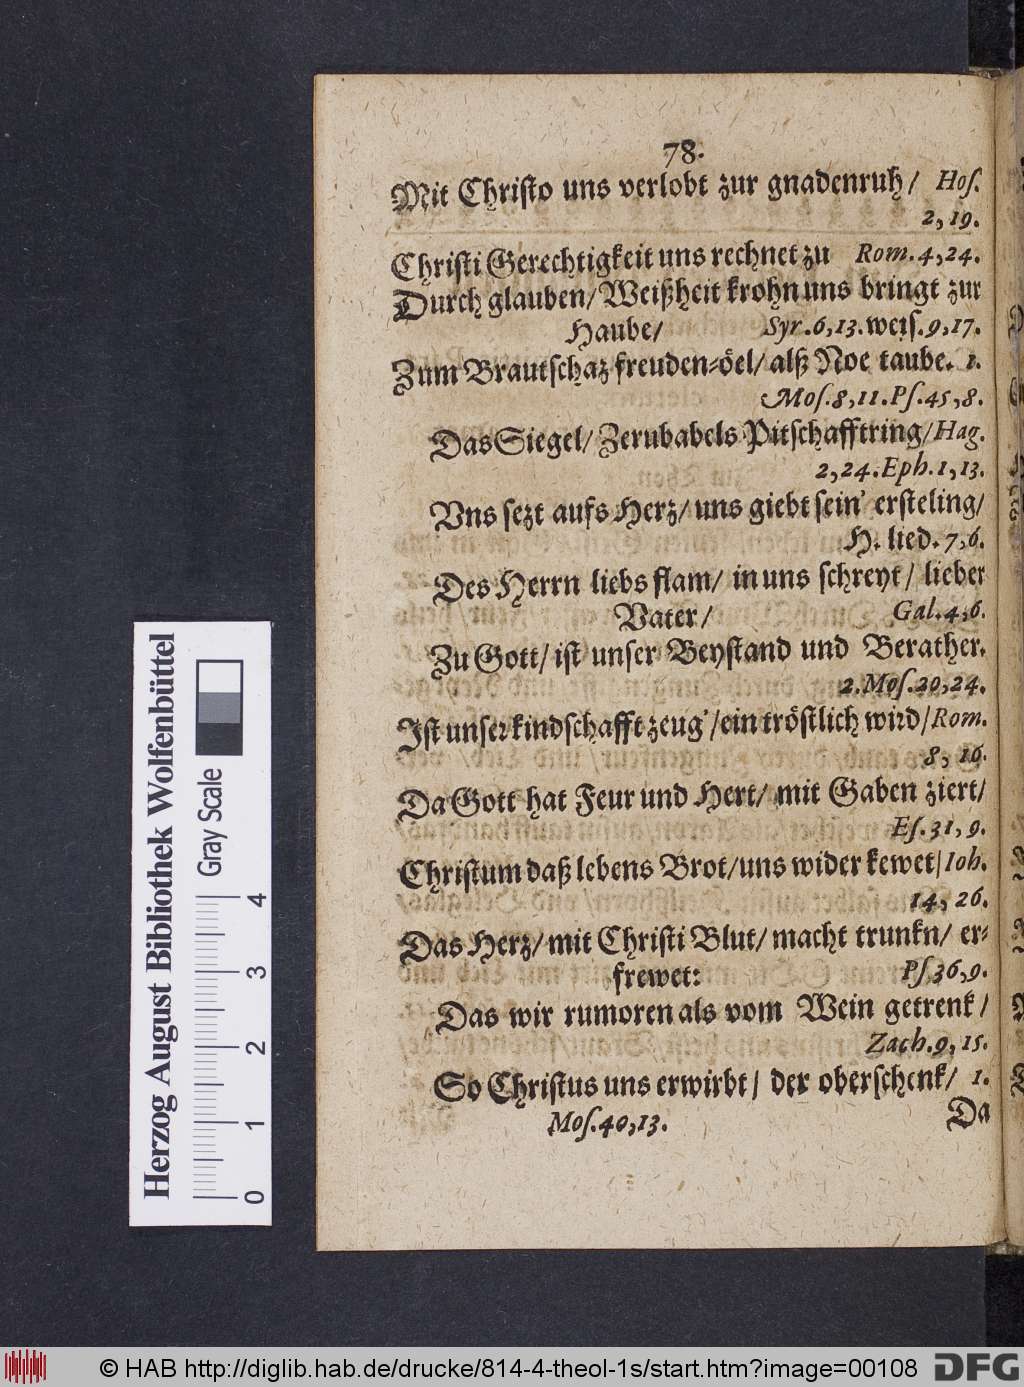 78.
Mit Christo uns verlobt zur gnadenruh/ Hoſ.
2, 19.
Christi Gerechtigkeit uns rechnet zu Rom. 4, 24.
Durch glauben/ Weißheit krohn uns bringt zur
Haube/ Syr. 6, 13. weiſ. 9, 17.
Zum Brautſchaz freuden⸗öel/ alß Noe taube. 1.
Moſ. 8, 11. Pſ. 45, 8.
Das Siegel/ Zerubabels Pitſchafftring/ Hag.
2, 24. Eph. 1, 13.
Vns ſezt aufs Herz/ uns giebt ſein' erſteling/
H. lied. 7, 6.
Des Herrn liebs flam/ in uns ſchreyt/ lieber
Vater/ Gal. 4, 6.
Zu Gott/ iſt unſer Beyſtand und Berather.
2. Moſ. 20, 24.
Iſt unſer kindſchafft zeug'/ ein tröſtlich wird/ Rom.
8, 16.
Da Gott hat Feur und Hert/ mit Gaben ziert/
Eſ. 31, 9.
Chriſtum daß lebens Brot/ uns wider kewet/ Ioh.
14, 26.
Das Herz/ mit Chriſti Blut/ macht trunkn/ er⸗
frewet: Pſ. 36, 9.
Das wir rumoren als vom Wein getrenk/
Zach. 9, 15.
So Chriſtus uns erwirbt/ der oberſchenk/ 1.
Moſ. 40, 13. Da
Herzog August Bibliothek Wolfenbüttel
Gray Scale
0 1 2 3 4
© HAB http://diglib.hab.de/drucke/814-4-theol-1s/start.htm?image=00108
DFG